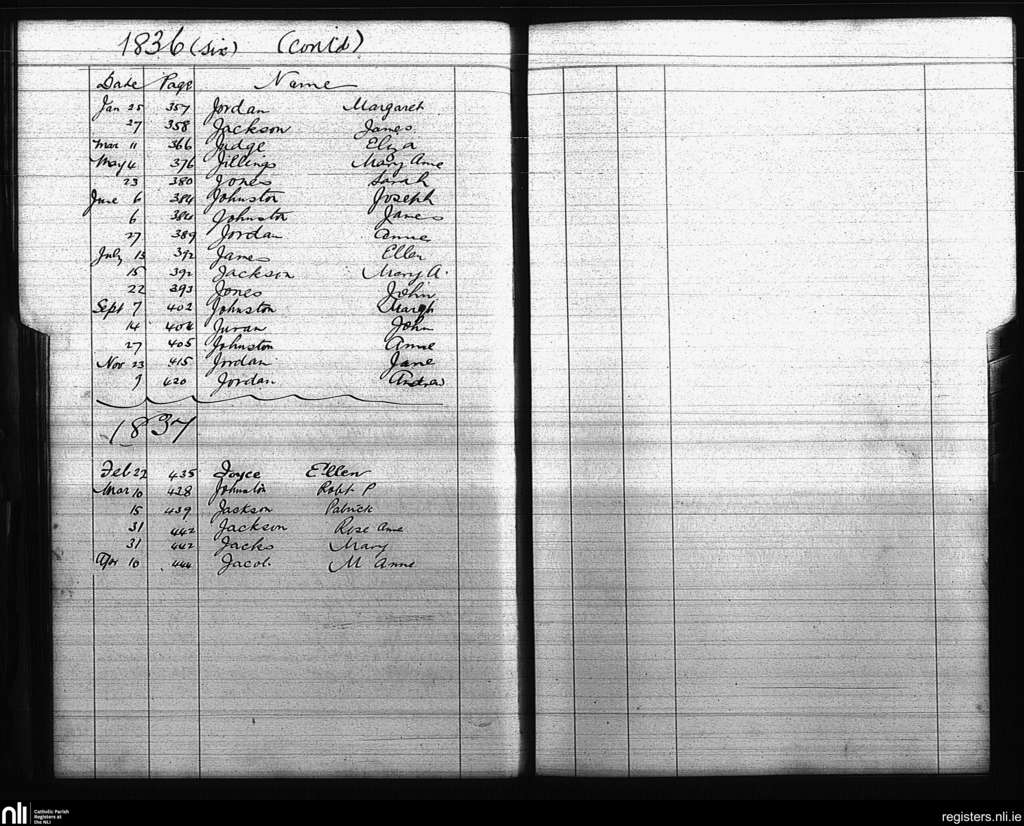 1836 (six) (Contd)
Date Page Name
Jan 25 357 Jordan Margaret
27 358 Jackson James
Mar 11 366 Judge Eliza
May 4 376 Jillings Mary Anne
23 380 Jones Sarah
June 6 384 Johnston Joseph
6 384 Johnston James
27 389 Jordan Anne
July 13 392 Janes Ellen
15 392 Jackson Mary A.
22 393 Jones John
Sept 7 402 Johnston Margt
14 404 Juran John
27 405 Johnston Anne
Nov 23 415 Jordan Jane
9 420 Jordan Andrew
1837
Feb 22 435 Joyce Ellen
Mar 10 438 Johnston Robt P
15 439 Jackson Patrick
31 442 Jackson Rose Anne
31 442 Jacks Mary
Apr 10 444 Jacob M Anne
nli Catholic Parish
Registers at
the NLI
registers.nli.ie